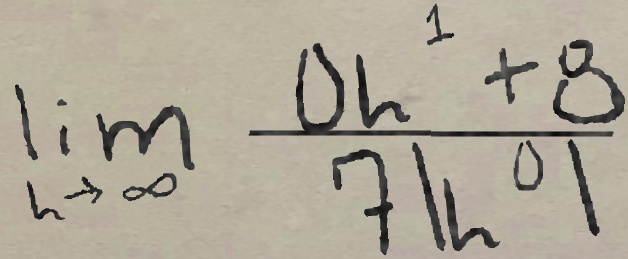 \lim_{h \to \infty} \frac{0h^1 + 8}{7|h^0|}